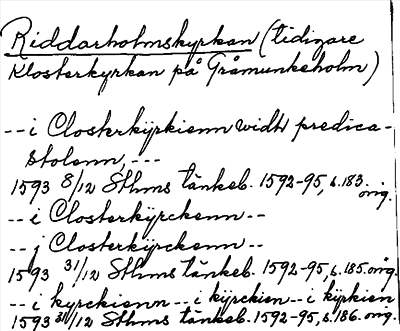 Riddarholmskyrkan (tidigare
Klosterkyrkan på Gråmunkeholm)
-- i Closterkÿrkienn widh predica-
stolenn, ---
1593 8/12 Sthms tänkeb. 1592-95, s. 183. orig.
-- i Closterkÿrckenn --
-- j Closterkÿrckenn --
1593 31/12 Sthms tänkeb. 1592-95, s. 185. orig.
-- i kyrckienn -- i kÿrckien -- i kÿrkien
1593 31/12 Sthms tänkeb. 1592-95, s. 186. orig.